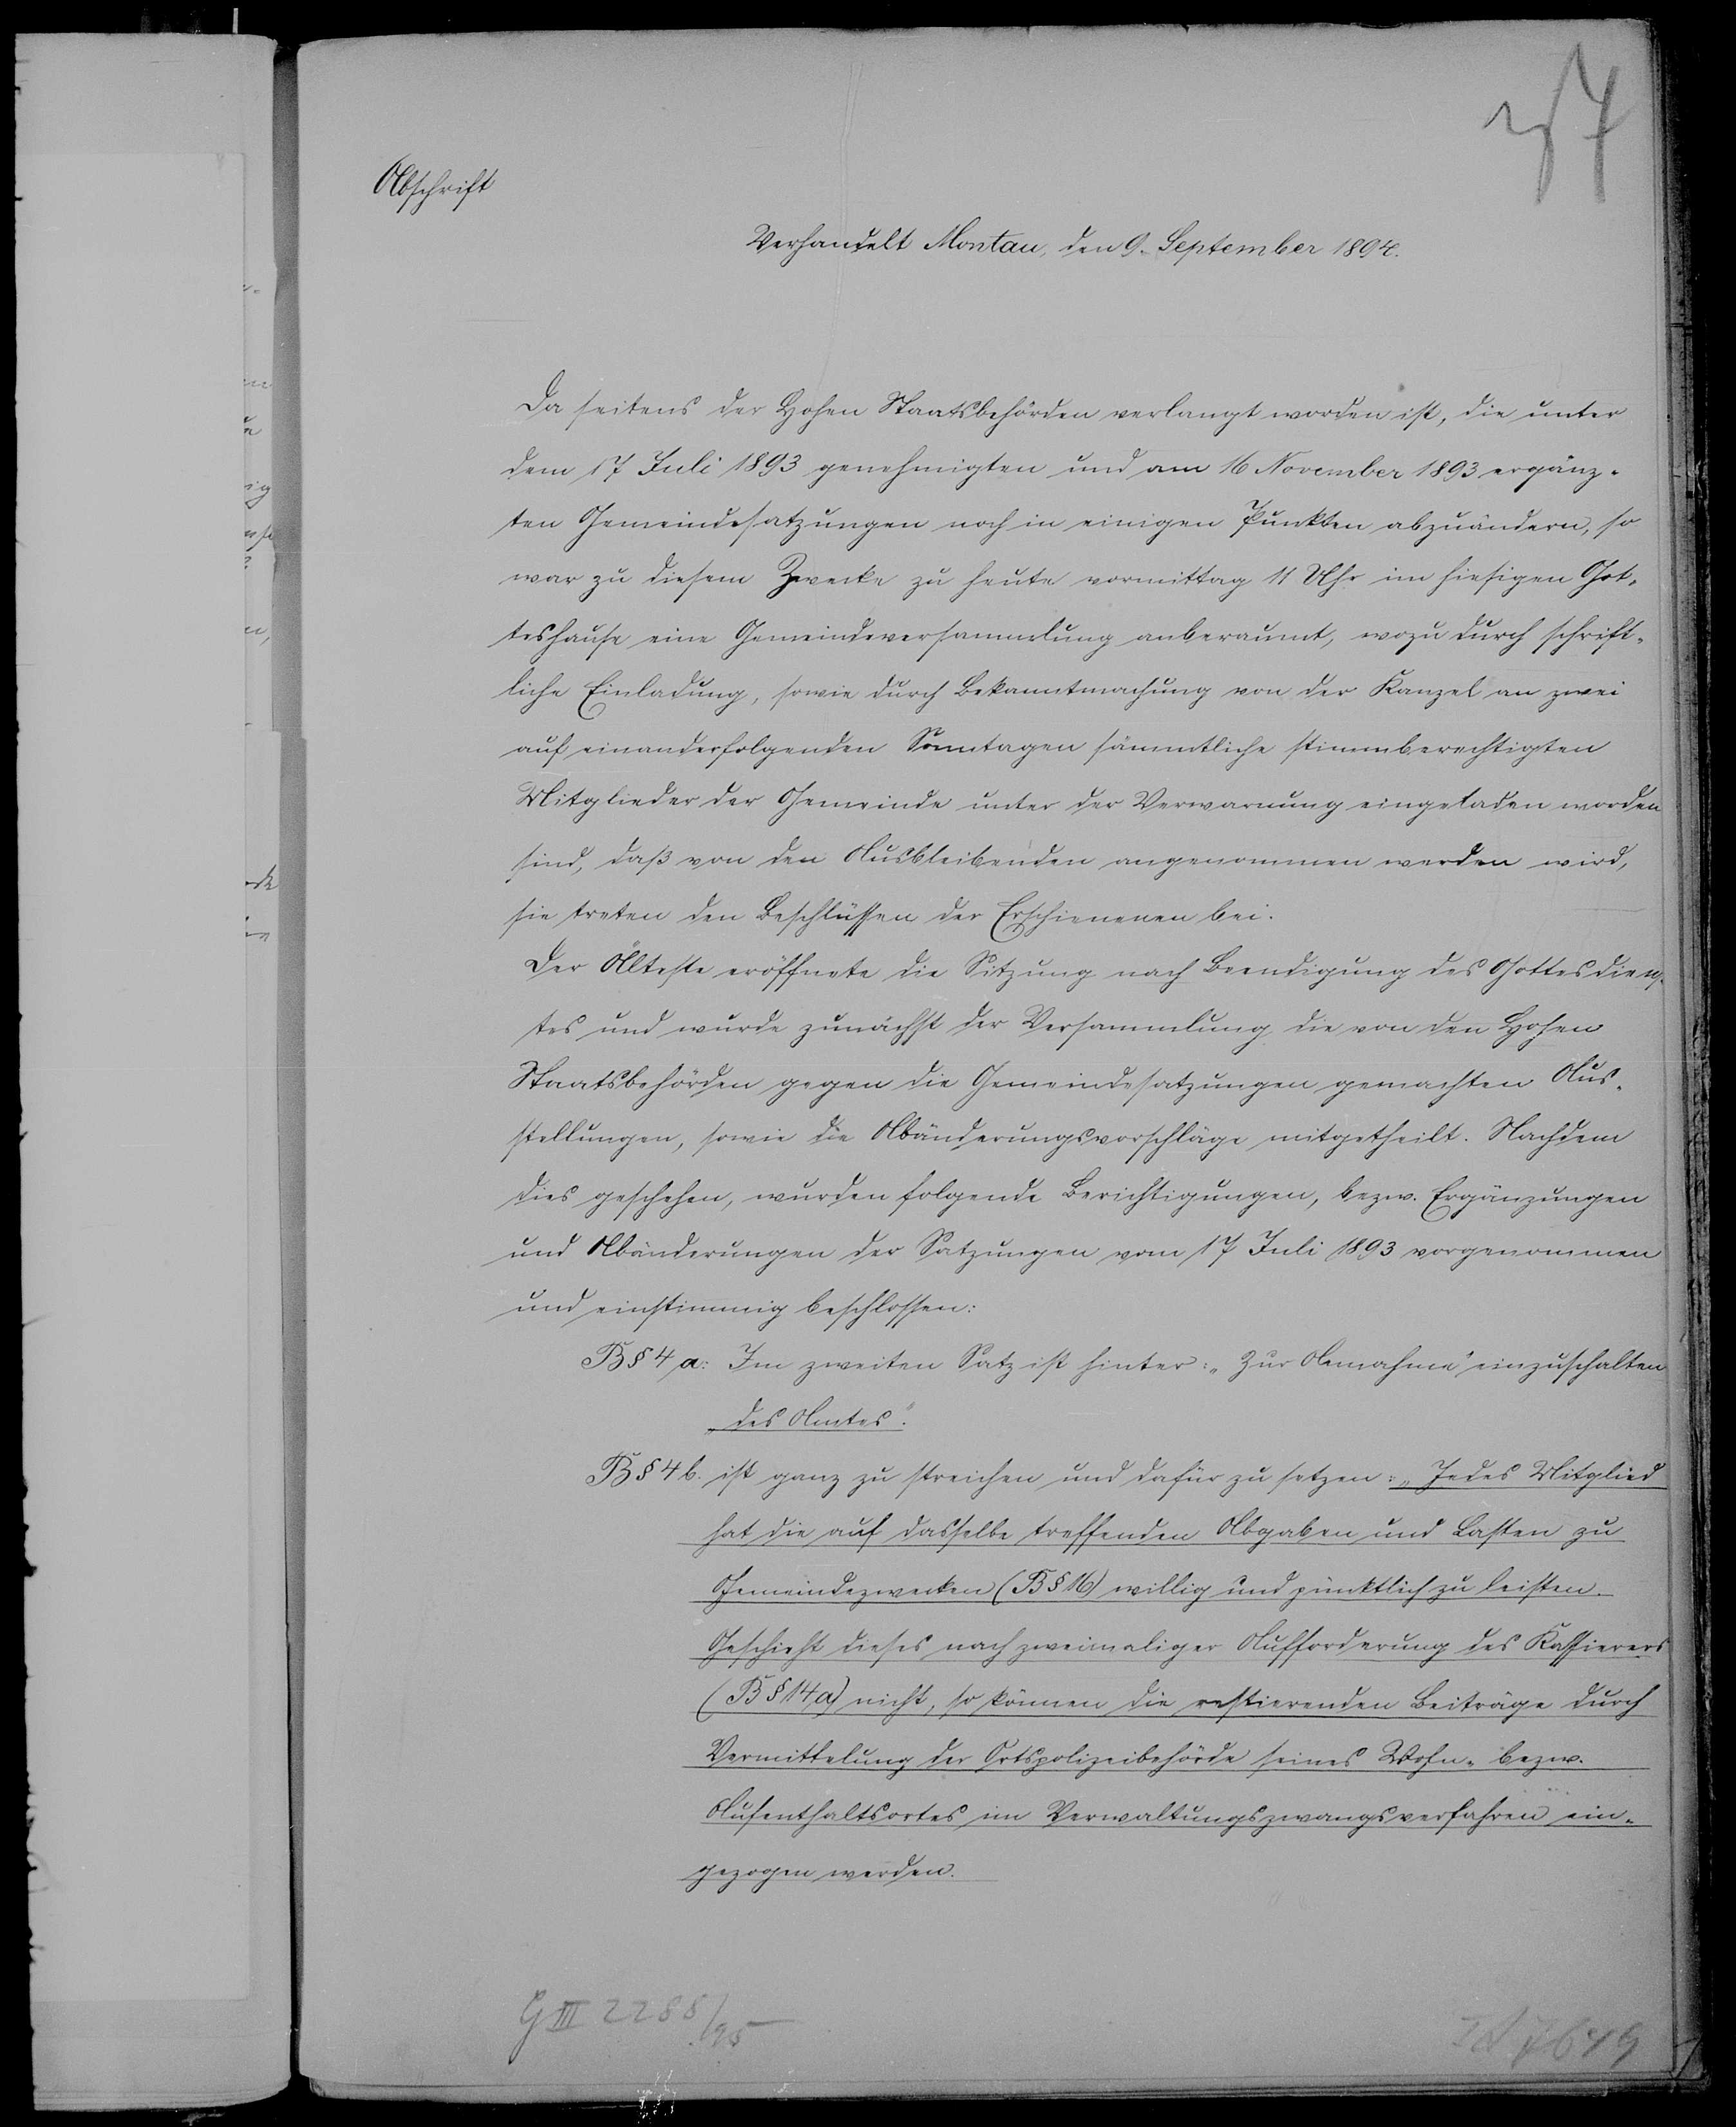 Abschrift
Verhandelt Montau, den 9. September 1894.
Da seitens der Hohen Staatsbehörden verlangt worden ist, die unter
dem 17 Juli 1893 genehmigten und am 16 November 1893 ergänz-
ten Gemeindesatzungen noch in einigen Punkten abzuändern, so
war zu diesem Zwecke zu heute vormittag 11 Uhr im hiesigen Got-
teshause eine Gemeindeversammlung anberaumt, wozu durch schrift-
liche Einladung, sowie durch Bekanntmachung von der Kanzel an zwei
auf einanderfolgenden Sonntagen sämmtliche stimmberechtigten
Mitglieder der Gemeinde unter der Verwarnung eingeladen worden
sind, daß von den Ausbleibenden angenommen werden wird,
sie treten den Beschlüssen der Erschienenen bei.
Der Älteste eröffnete die Sitzung nach Beendigung des Gottesdiens-
tes und wurde zunächst der Versammlung die von den Hohen
Staatsbehörden gegen die Gemeindesatzungen gemachten Aus-
stellungen, sowie die Abänderungsvorschläge mitgetheilt. Nachdem
dies geschehen, wurden folgende Berichtigungen, bezw. Ergänzungen
und Abänderungen der Satzungen vom 17 Juli 1893 vorgenommen
und einstimmig beschlossen:
B § 4 a: Im zweiten Satz ist hinter: „Zur Annahme" einzuschalten
„des Amtes".
B § 4 b. ist ganz zu streichen und dafür zu setzen: „Jedes Mitglied
hat die auf dasselbe treffenden Abgaben und Lasten zu
Gemeindezwecken (B § 16) willig und pünktlich zu leisten.
Geschieht dieses nach zweimaliger Aufforderung des Kassierers
(B § 14 a) nicht, so können die restierenden Beiträge durch
Vermittelung der Ortspolizeibehörde seines Wohn- bezw.
Aufenthaltsortes im Verwaltungszwangsverfahren ein-
gezogen werden.
G III 2288/95
7649